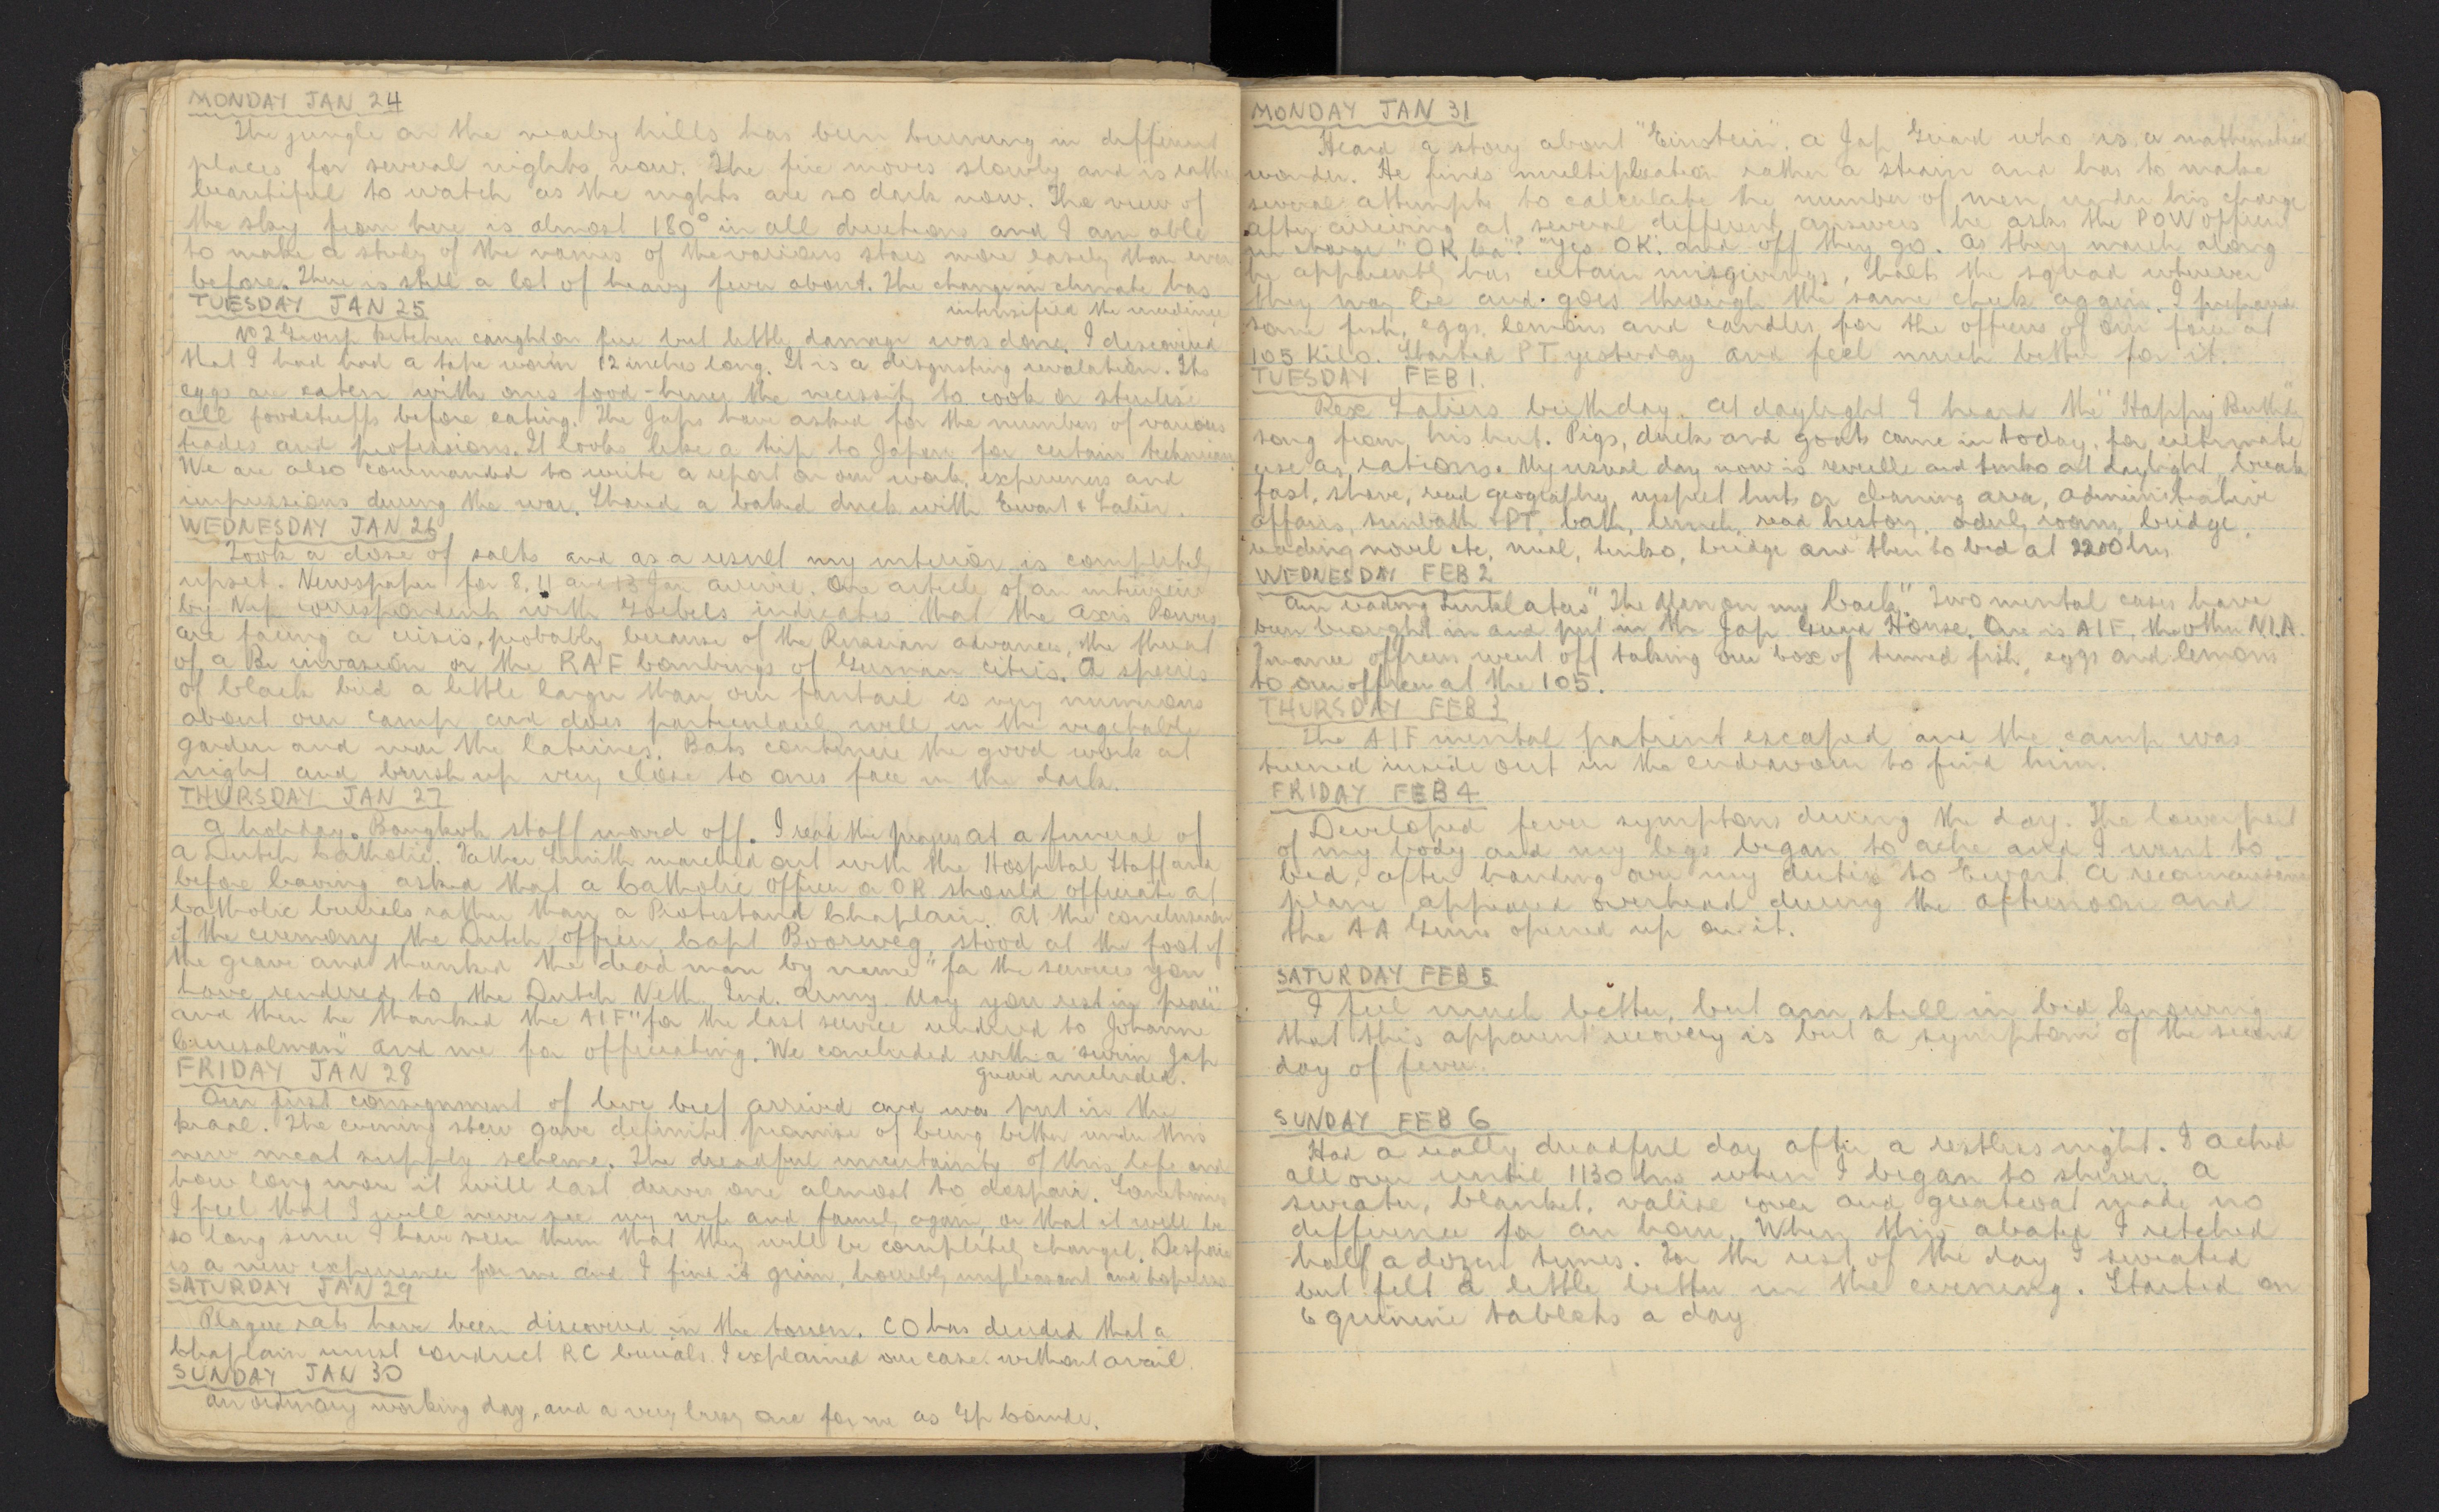 MONDAY JAN 24
The jungle on the nearby hills has been burning in different
places for several nights now. The fire moves slowly and is rather
beautiful to watch as the nights are so dark now. The view of
the sky from here is almost 180° in all directions and I am able
to make a study of the names of the various stars more easily than ever
before. There is still a lot of heavy fever about. The change in climate has
intensified the incidence
TUESDAY JAN 25
No 2 Group kitchen caught on fire but little damage was done. I discovered
that I had had a tape worm 12 inches long. It is a disgusting revalation. Its
eggs are eaten with ones food - hence the necessity to cook or sterilise
all foodstuffs before eating. The Japs have asked for the numbers of various
trades and professions. It looks like a trip to Japan for certain technicians
We are also commanded to write a report on our work, experiences and
impressions during the war. Shared a baked duck with Ewart &
WEDNESDAY JAN 26
Took a dose of salts and as a usuel my interior is completely
upset. Newspaper for 8, 11 and 13 Jan arrive. One article of an interview
by Nip correspondents with Goebels indicates that the Axis Powers
are facing a crisis, probably because of the Russian advances, the threat
of a Br invasion or the RAF bombings of German cities. A species
of black bird a little larger than our fantail is very numerous
about our camp and does particularly well in the vegetable
garden and near the latrines. Bats continue the good work at
night and brush up very close to ones face in the dark.
THURSDAY JAN 27
A holiday. Bangkok staff moved off. I read the prayers at a funeral of
a Dutch Catholic. Father Smith marched out with the Hospital Staff and
before leaving asked that a Catholic officer or OR should officiate at
Catholic burials rather than a Protestand Chaplain. At the conclusion
of the ceremony the Dutch officer, Capt Boorweg, stood at the foot of
the grave and thanked the dead man by name "for the services you
have rendered to the Dutch Neth. Ind. Army. May you rest in peace"
and then he thanked the AIF "for the last service rendered to Johanne
" and me for officiating. We concluded with a swim Jap
guard included.
FRIDAY JAN 28
Our first consignment of live beef arrived and was put in the
kraal. The evening stew gave definite promise of being better under this
new meat supply scheme. The dreadful uncertainty of this life and
how long more it will last drives one almost to despair. Sometimes
I feel that I will never see my wife and family again, or that it will be
so long since I have seen them that they will be completely changed. Despair
is a new experience for me and I find it grim, horribly unpleasant and hopeless
SATURDAY JAN 29
Plague rats have been discovered in the town. CO has decided that a
Chaplain must conduct RC burials. I explained our case without avail.
SUNDAY JAN 30
An ordinary working day, and a very busy one for me as Gp Comdr.
MONDAY JAN 31
Heard a story about "Einstein", a Jap Guard who is a mathematical
wonder. He finds multiplication rather a strain and has to make
several attempts to calculate the number of men under his charge
After arriving at several different answers he asks the POW officer
in charge "OK ka"? "Yes OK". and off they go. As they march along
he apparently has certain misgivings, halts the squad wherever
they may be and goes through the same check again. I prepared
some fish, eggs, lemons and candles for the officers of our force at
105 Kilo. Started PT yesterday and feel much better for it.
TUESDAY FEB 1.
Rex birthday. At daylight I heard the "Happy Birthday"
song from his hut. Pigs, duck and goats came in today, for ultimate
use as rations. My usual day now is reveille and tenko at daylight, break
fast, shave, read geography, inspect huts or cleaning area, administrative
affairs, sunbath & PT, bath, lunch, read history, orderly room, bridge,
reading novel etc, meal, tenko, bridge and then to bed at 2200 hrs
WEDNESDAY FEB 2
Am reading Linklaters "The Men on my Back". Two mental cases have
been brought in and put in the Jap Guard House. One is AIF, the other N.I.A.
Finance officers went off taking our box of tinned fish, eggs and lemons
to our officers at the 105.
THURSDAY FEB 3
The AIF mental patient escaped and the camp was
turned inside out in the endeavour to find him.
FRIDAY FEB 4
Developed fever symptoms during the day. The lower part
of my body and my legs began to ache and I went to
bed, after handing over my duties to Ewart. A reconnaissance
plane appeared overhead during the afternoon and
the AA Guns opened up on it.
SATURDAY FEB 5
I feel much better, but am still in bed knowing
that this apparent recovery is but a symptom of the second
day of fever.
SUNDAY FEB 6
Had a really dreadful day after a restless night. I ached
all over until 1130 hrs when I began to shiver. A
sweater, blanket, valise cover and greatcoat made no
difference for an hour. When this abated I retched
half a dozen times. For the rest of the day I sweated
but felt a little better in the evening. Started on
6 quinine tablets a day